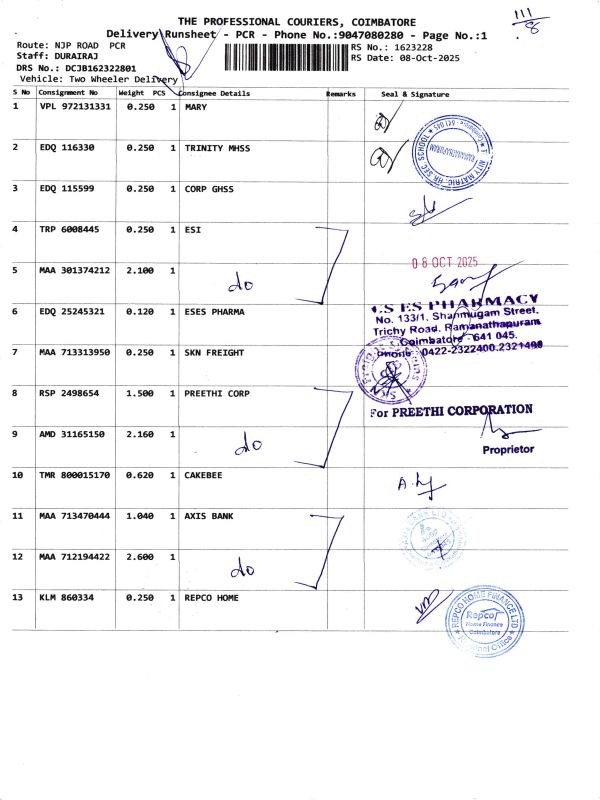 THE PROFESSIONAL COURIERS, COIMBATORE
111/8
Delivery Runsheet - PCR - Phone No.:9047080280 - Page No.:1
Route: NJP ROAD PCR
RS No.: 1623228
Staff: DURAIRAJ
RS Date: 08-Oct-2025
DRS No.: DCJB162322801
Vehicle: Two Wheeler Delivery
S No Consignment No Weight PCS Consignee Details Remarks Seal & Signature
1 VPL 972131331 0.250 1 MARY
2 EDQ 116330 0.250 1 TRINITY MHSS
NITY MATRIC. HR. SEC. SCHOOL
RAMANATHAPURAM
3 EDQ 115599 0.250 1 CORP GHSS
4 TRP 6008445 0.250 1 ESI
08 OCT 2025
5 MAA 301374212 2.100 1 do
6 EDQ 25245321 0.120 1 ESES PHARMA
ES PHARMACY
No. 133/1, Shanmugam Street,
Trichy Road, Ramanathapuram,
Coimbatore - 641 045.
Phone 0422-2322400,2321400
7 MAA 713313950 0.250 1 SKN FREIGHT
8 RSP 2498654 1.500 1 PREETHI CORP
For PREETHI CORPORATION
9 AMD 31165150 2.160 1 do
Proprietor
10 TMR 800015170 0.620 1 CAKEBEE
11 MAA 713470444 1.040 1 AXIS BANK
12 MAA 712194422 2.600 1 do
13 KLM 860334 0.250 1 REPCO HOME
REPCO HOME FINANCE LTD
Repco
Home Finance
Coimbatore
Office